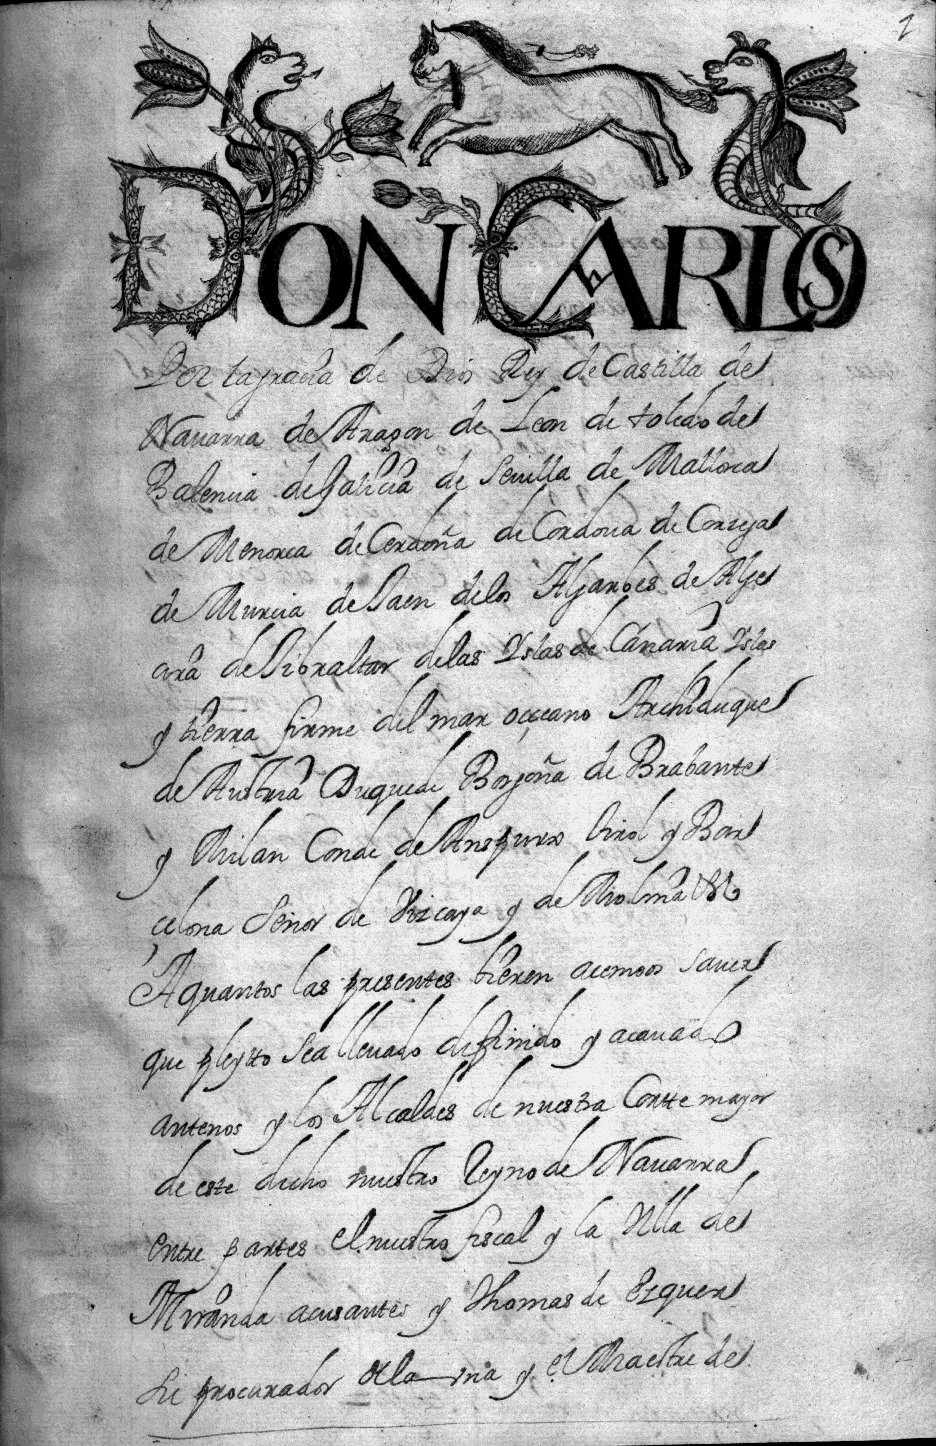 2
DON CARLOS
Por la gracia de Dios Rey de Castilla de
Nauarra de Aragon de Leon de toledo de
Balencia de Galicia de Seuilla de Mallorca
de Menorca de Cerdeña de Cordoua de Corzega
de Murcia de Jaen de los Algarbes de Alge
cira de Gibraltar de las Yslas de Canaria Yslas
y tierra firme del mar occeano Archiduque
de Austria Duque de Borgoña de Brabante
y Milan Conde de Anspurx tirol y Bar
celona Señor de Vizcaya y de Molina
Aquantos las presentes bieren acemos sauer
que pleyto sea lleuado difinido y acauado
antenos y los Alcaldes de nuestra Corte mayor
de este dicho nuestro Reyno de Nauarra
entre partes el nuestro fiscal y la Villa de
Miranda acusantes y Thomas de Ezquer
procurador y el Maestre de